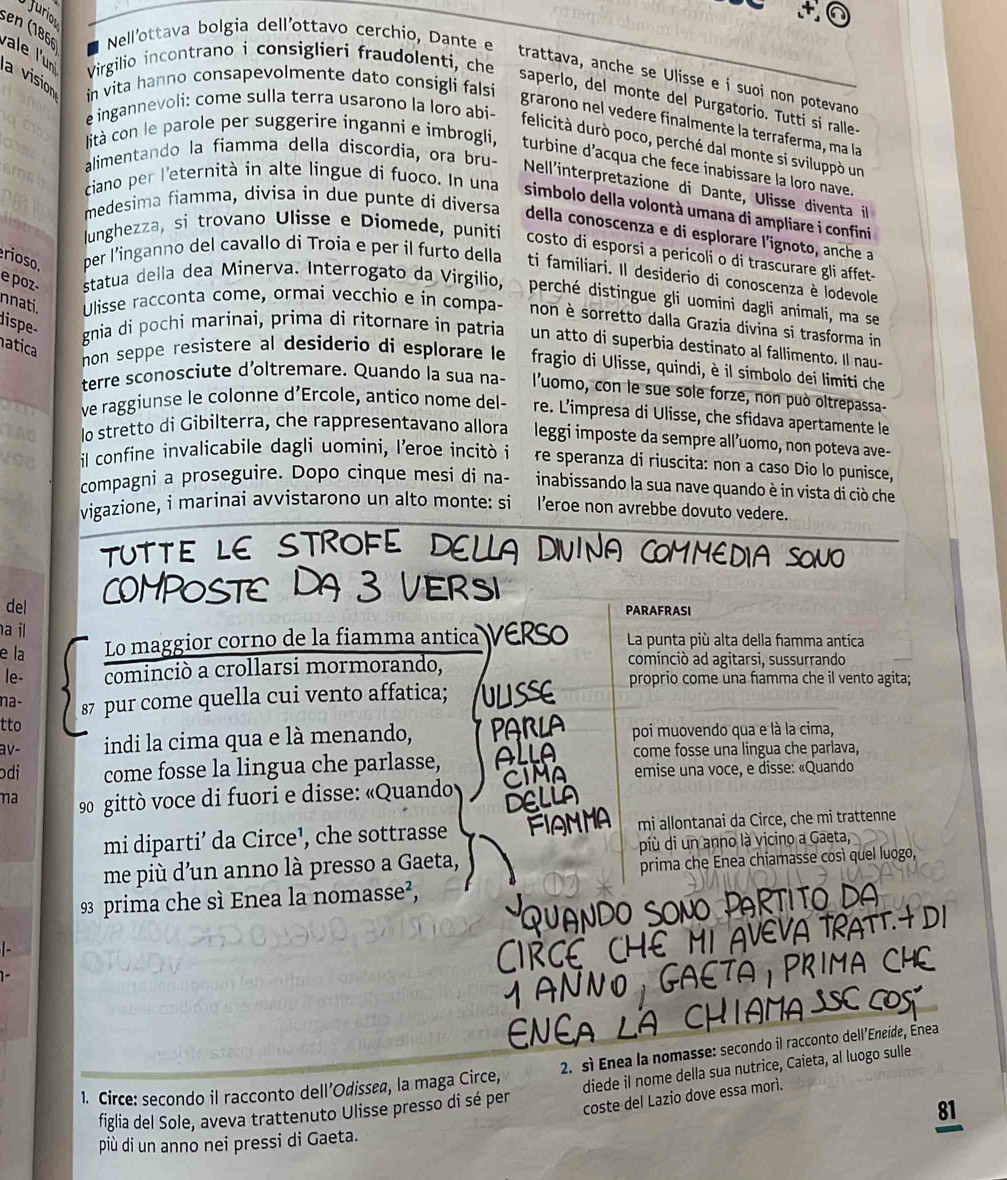 Jurios
sen (1866)
vale l'uni
la visione
Nell'ottava bolgia dell'ottavo cerchio, Dante e
Virgilio incontrano i consiglieri fraudolenti, che
in vita hanno consapevolmente dato consigli falsi
e ingannevoli: come sulla terra usarono la loro abi-
lità con le parole per suggerire inganni e imbrogli,
alimentando la fiamma della discordia, ora bru-
ciano per l'eternità in alte lingue di fuoco. In una
medesima fiamma, divisa in due punte di diversa
lunghezza, si trovano Ulisse e Diomede, puniti
per l'inganno del cavallo di Troia e per il furto della
statua della dea Minerva. Interrogato da Virgilio,
Ulisse racconta come, ormai vecchio e in compa-
gnia di pochi marinai, prima di ritornare in patria
non seppe resistere al desiderio di esplorare le
terre sconosciute d'oltremare. Quando la sua na-
ve raggiunse le colonne d'Ercole, antico nome del-
lo stretto di Gibilterra, che rappresentavano allora
il confine invalicabile dagli uomini, l'eroe incitò i
compagni a proseguire. Dopo cinque mesi di na-
vigazione, i marinai avvistarono un alto monte: si
trattava, anche se Ulisse e i suoi non potevano
saperlo, del monte del Purgatorio. Tutti si ralle-
grarono nel vedere finalmente la terraferma, ma la
felicità durò poco, perché dal monte si sviluppò un
turbine d'acqua che fece inabissare la loro nave.
Nell'interpretazione di Dante, Ulisse diventa il
simbolo della volontà umana di ampliare i confini
della conoscenza e di esplorare l'ignoto, anche a
costo di esporsi a pericoli o di trascurare gli affet-
ti familiari. Il desiderio di conoscenza è lodevole
perché distingue gli uomini dagli animali, ma se
non è sorretto dalla Grazia divina si trasforma in
un atto di superbia destinato al fallimento. Il nau-
fragio di Ulisse, quindi, è il simbolo dei limiti che
l'uomo, con le sue sole forze, non può oltrepassa-
re. L'impresa di Ulisse, che sfidava apertamente le
leggi imposte da sempre all'uomo, non poteva ave-
re speranza di riuscita: non a caso Dio lo punisce,
inabissando la sua nave quando è in vista di ciò che
l'eroe non avrebbe dovuto vedere.
erioso.
e poz-
nnati.
dispe-
natica
del
na il
e la
le-
na-
tto
av-
odi
ma
l-
TUTTE LE STROFE DELLA DIVINA COMMEDIA SONO
COMPOSTE DA 3 VERSI
Lo maggior corno de la fiamma antica
cominciò a crollarsi mormorando,
87 pur come quella cui vento affatica;
indi la cima qua e là menando,
come fosse la lingua che parlasse,
90 gittò voce di fuori e disse: «Quando
mi diparti' da Circe¹, che sottrasse
me più d'un anno là presso a Gaeta,
93 prima che sì Enea la nomasse²,
VERSO
ULISSE
PARLA
ALLA
CIMA
DELLA
FIAMMA
PARAFRASI
La punta più alta della fiamma antica
cominciò ad agitarsi, sussurrando
proprio come una fiamma che il vento agita;
poi muovendo qua e là la cima,
come fosse una lingua che parlava,
emise una voce, e disse: «Quando
mi allontanai da Circe, che mi trattenne
più di un anno là vicino a Gaeta,
prima che Enea chiamasse così quel luogo,
QUANDO SONO PARTITO DA
CIRCE CHE MI AVEVA TRATT. + DI
1 ANNO, GAETA, PRIMA CHE
ENEA LA CHIAMASSE COSÌ
1. Circe: secondo il racconto dell'Odissea, la maga Circe,
figlia del Sole, aveva trattenuto Ulisse presso di sé per
più di un anno nei pressi di Gaeta.
2. sì Enea la nomasse: secondo il racconto dell'Eneide, Enea
diede il nome della sua nutrice, Caieta, al luogo sulle
coste del Lazio dove essa morì.
81